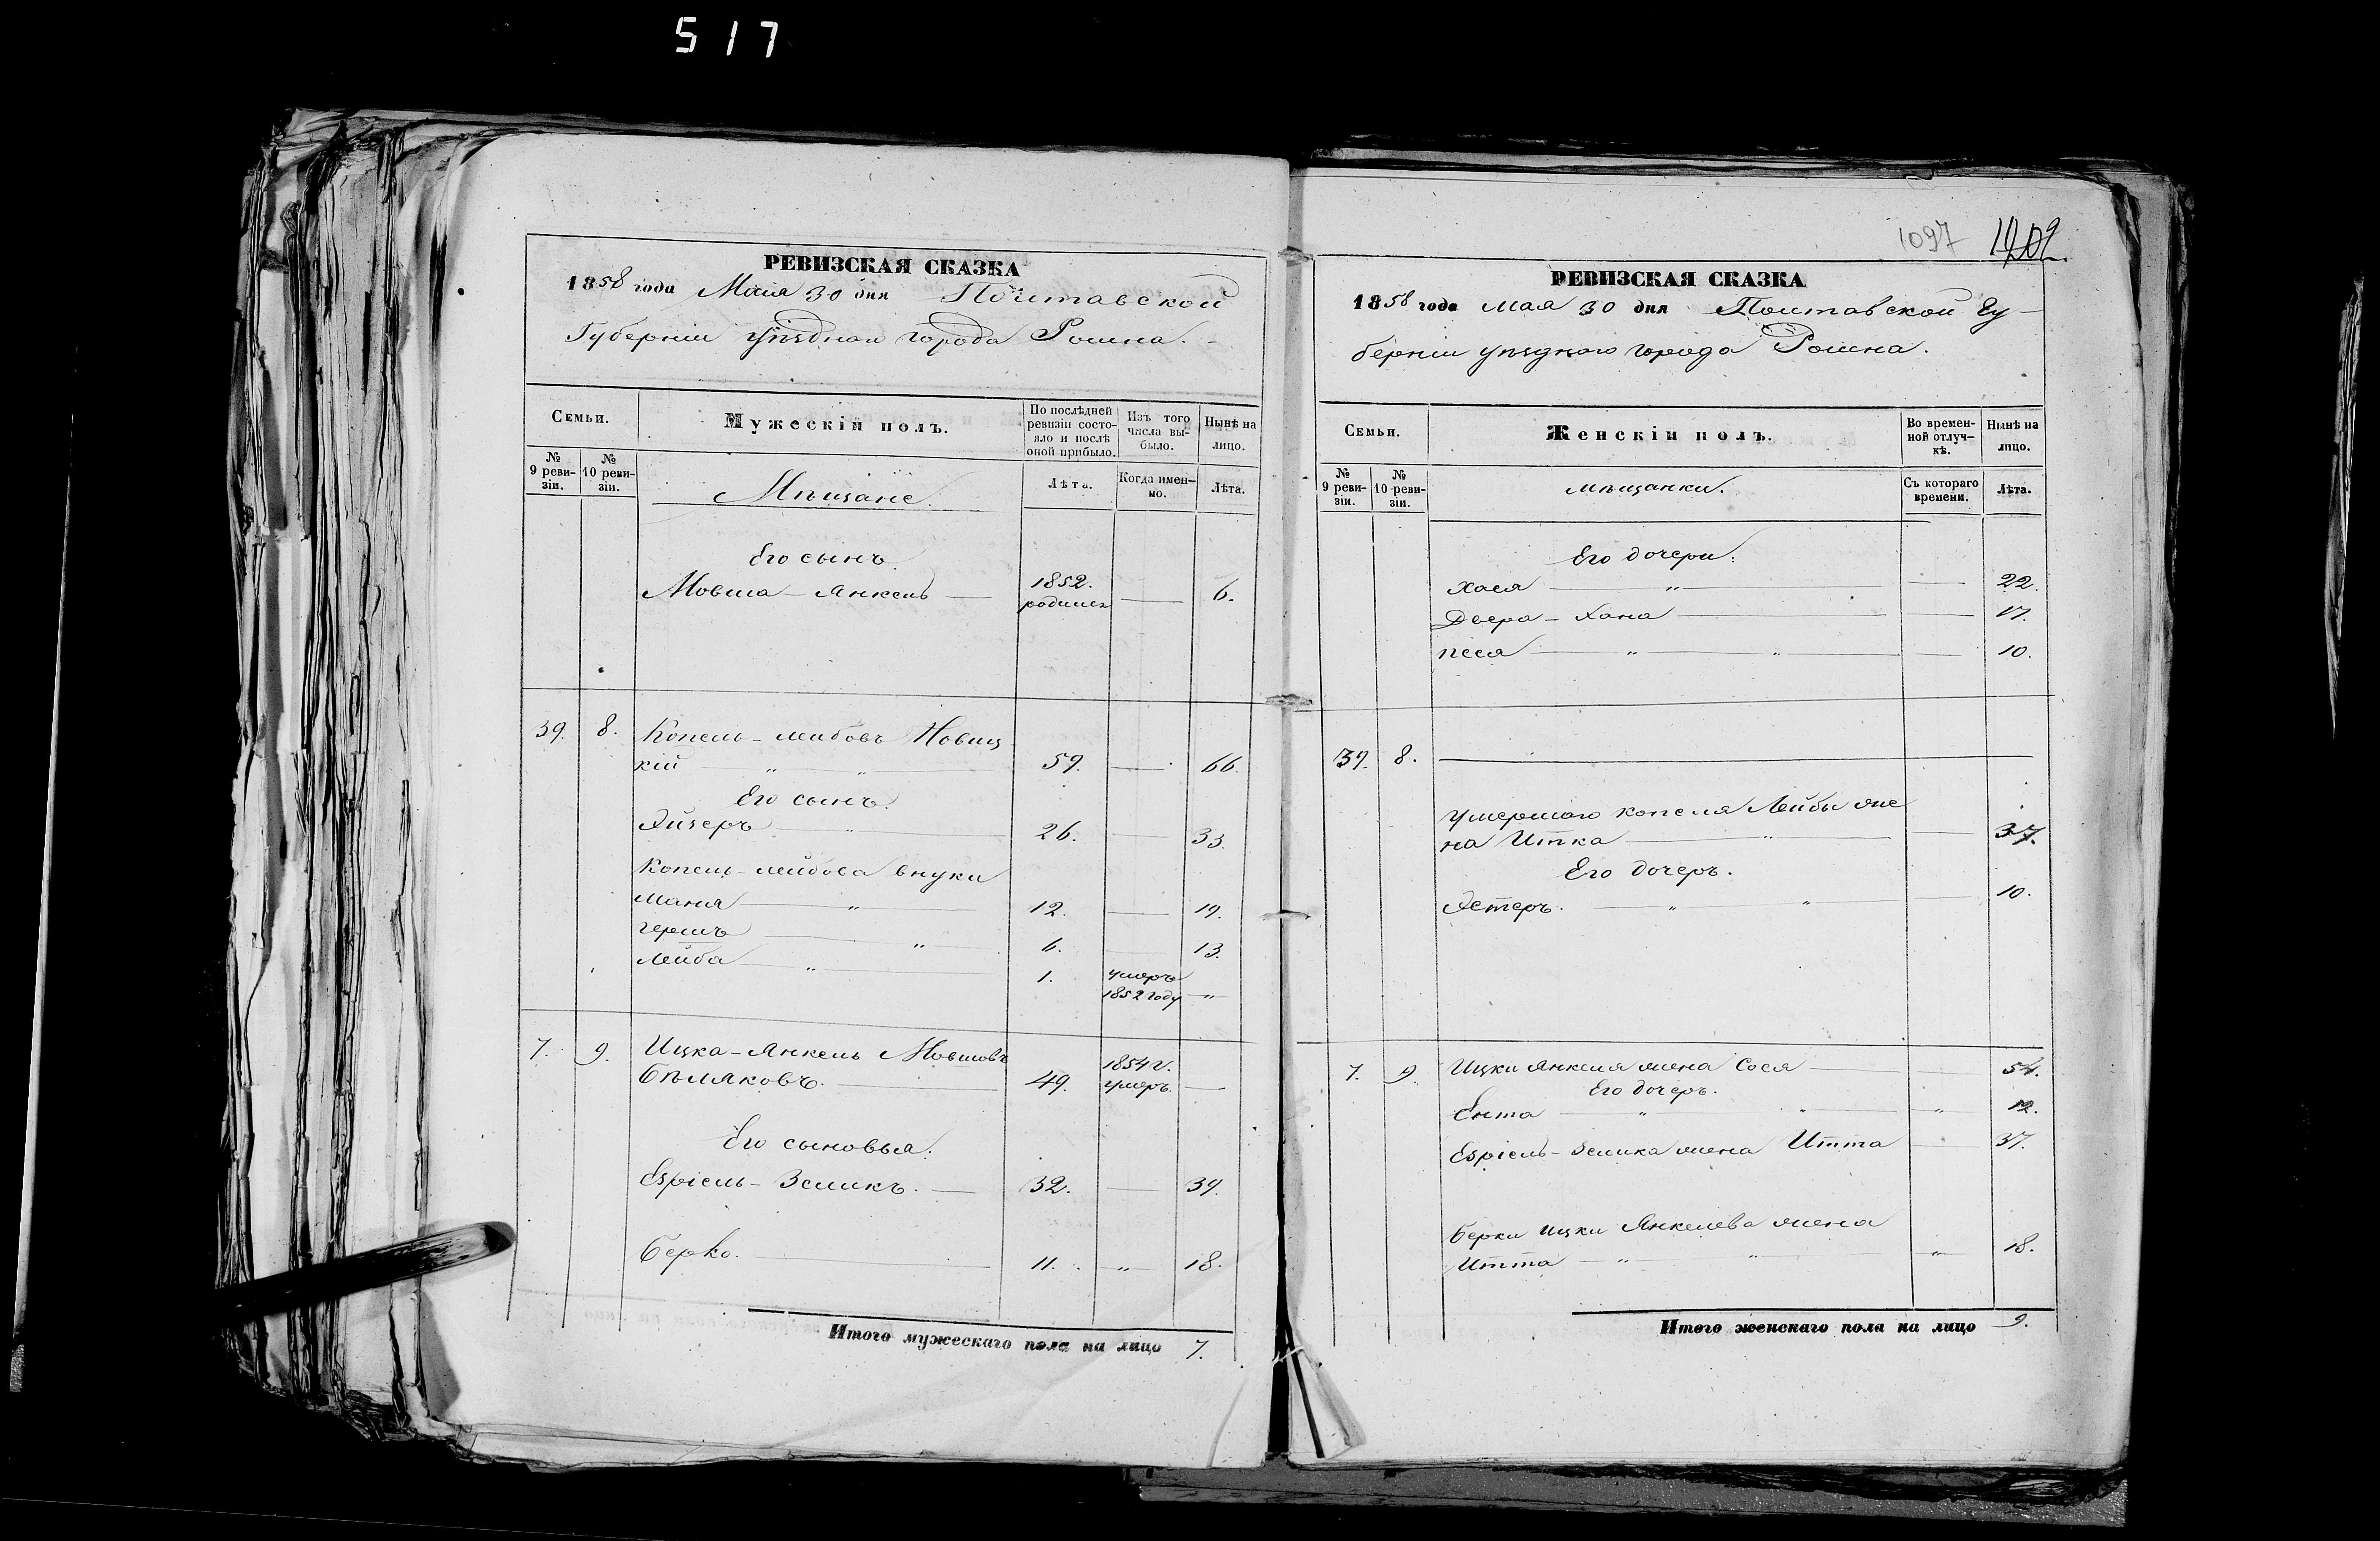 517
РЕВИЗСКАЯ СКАЗКА
1858 года Мая 30 дня Полтавской
Губерніи уѣзднаго города Ромна.
Семьи.
Мужескій полъ.
По послѣдней ревизіи состояло и послѣ оной прибыло.
Изъ того числа выбыло.
Нынѣ на лицо.
№ 9 ревизіи.
№ 10 ревизіи.
Мѣщане.
Лѣта.
Когда именно.
Лѣта.
Его сынъ.
Мовша-Янкель 1852. родился 6.
39. 8. Копель-Лейбовъ Новиц
кій " " 59. 66.
Его сынъ.
Эйзеръ " 26. 33.
Копель-Лейбова внуки
Маня " 12. 19.
Гершъ " 6. 13.
Лейба " 1. умеръ
1852 году "
7. 9. Ицка-Янкель Мовшовъ 1854 г.
Бѣляковъ. 49. умеръ.
Его сыновья.
Езріель-Зеликъ. 32. 39.
Берко. 11. " 18.
Итого мужескаго пола на лицо 7.
1097 1202.
РЕВИЗСКАЯ СКАЗКА
1858 года Мая 30 дня Полтавской Гу-
берніи уѣзднаго города Ромна.
Семьи.
Женскій полъ.
Во временной отлучкѣ.
Нынѣ на лицо.
№ 9 ревизіи.
№ 10 ревизіи.
Мѣщанки.
Съ котораго времени.
Лѣта.
Его дочери.
Хася " 22.
Двера-Хана 17.
Песя " " 10.
39. 8.
Умершаго Копеля Лейбы же
на Итка " 37.
Его дочеръ.
Эстеръ. " " 10.
7. 9. Ицки Янкеля жена Сося 54.
Его дочеръ.
Ента " " " 12.
Езріель-Зелика жена Итта 37.
Берки Ицки Янкелева жена
Итта " " " 18.
Итого женскаго пола на лицо 9.